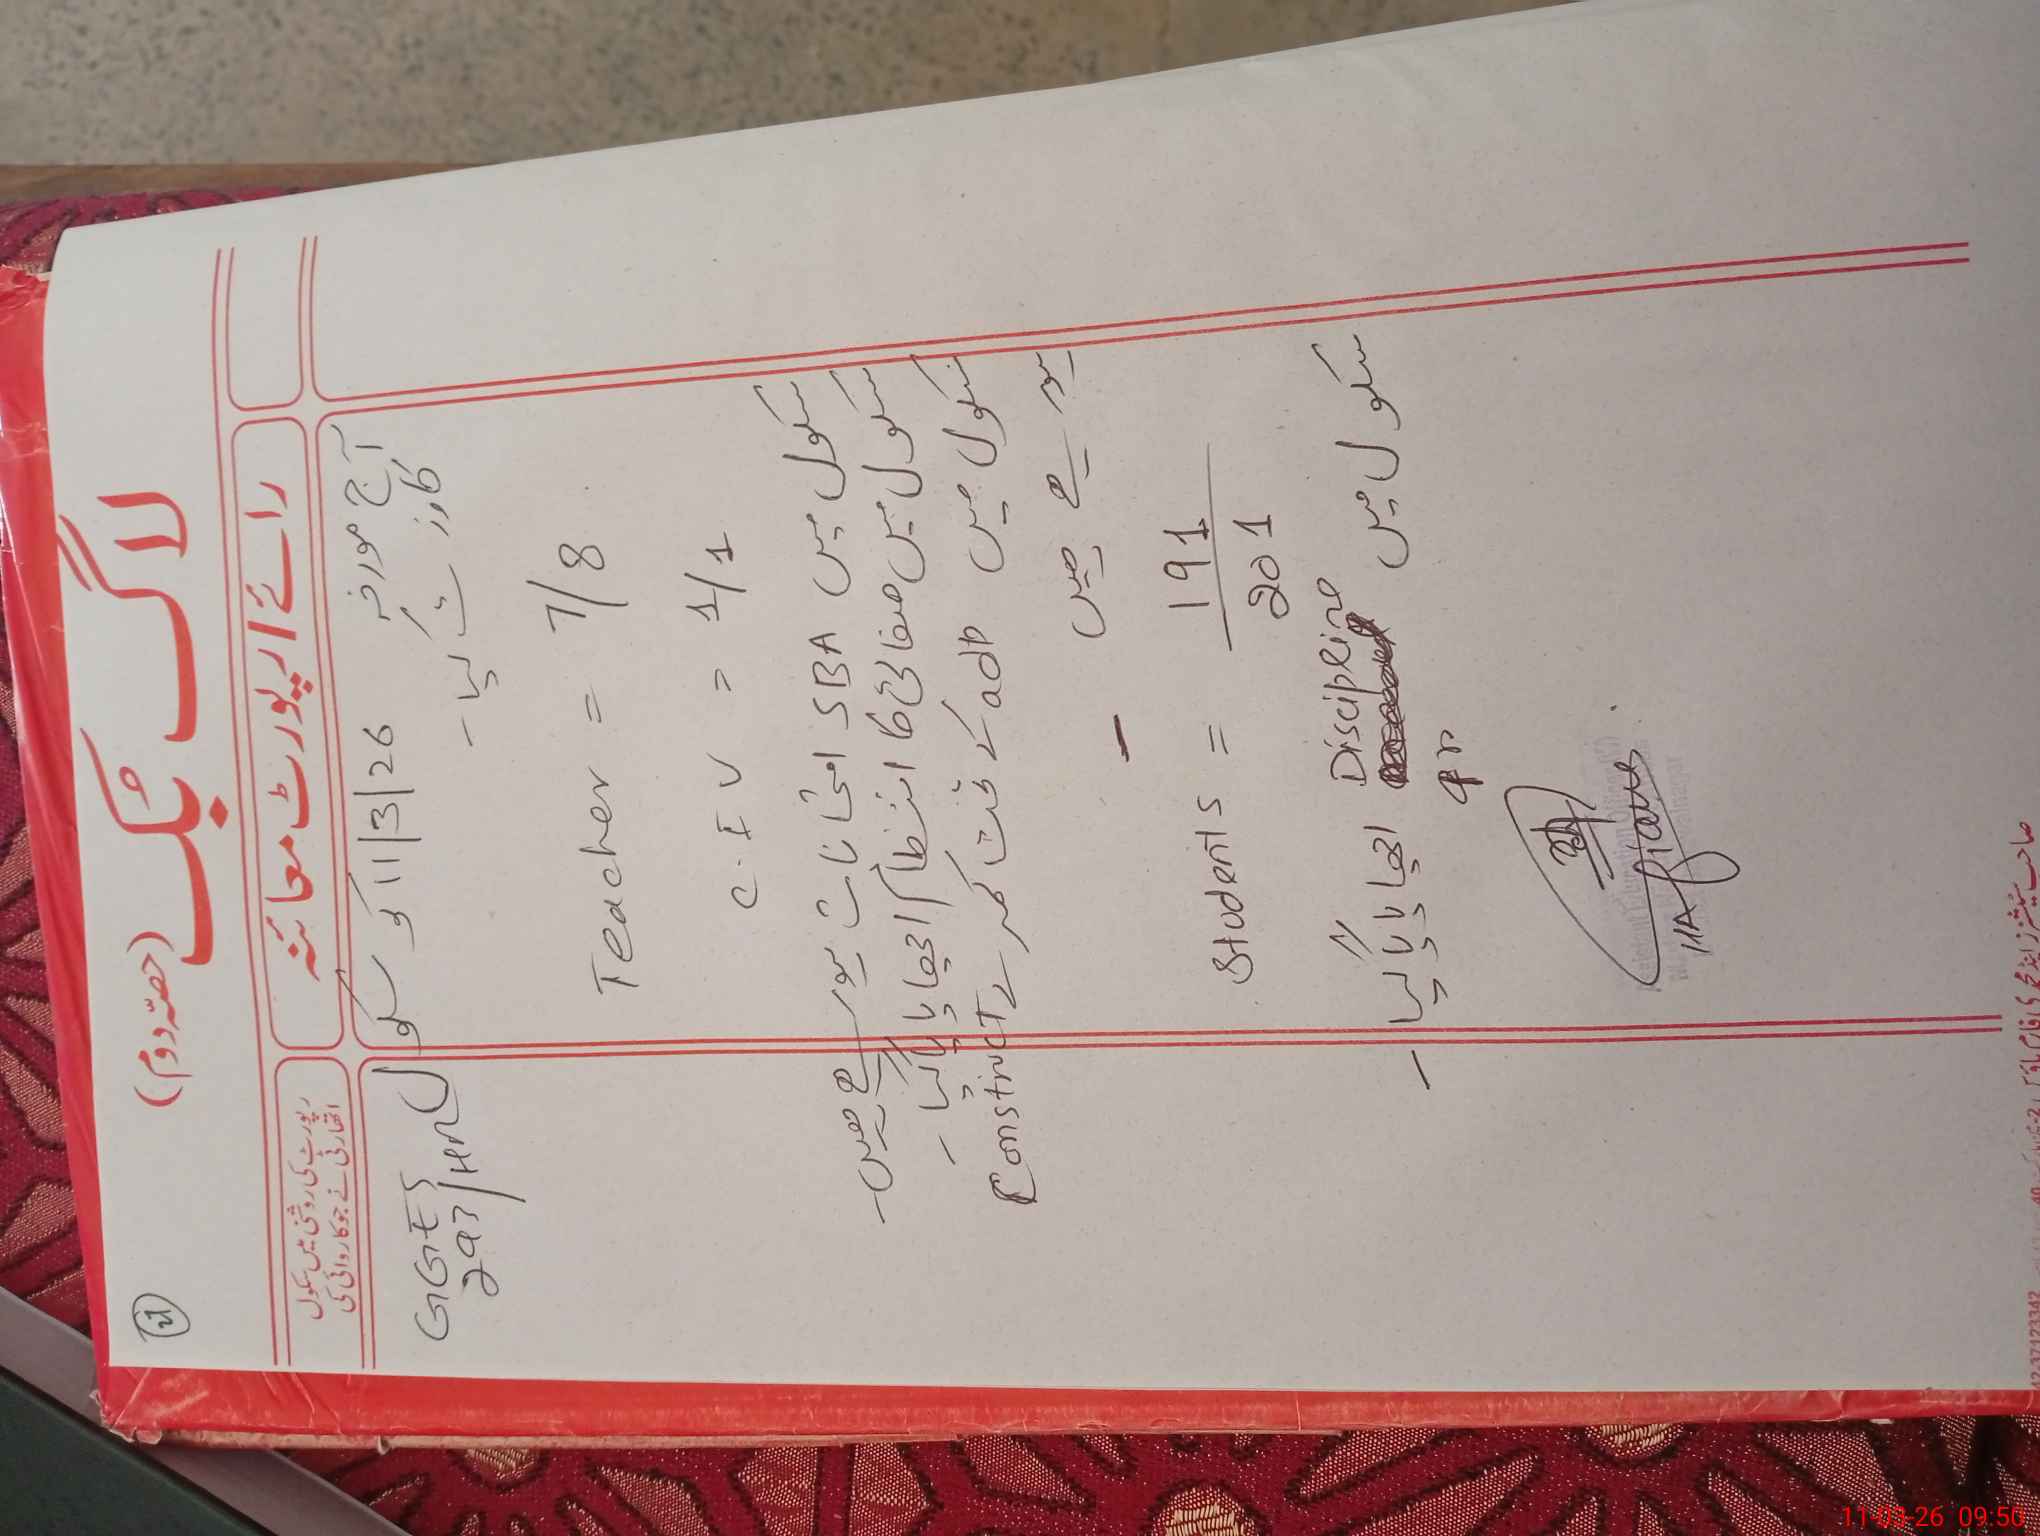 لاگ بک (حصہ دوم)
رائے / رپورٹ معائنہ
رپورٹ کی روشنی میں سکول
اتھارٹی نے جو کاروائی کی
آج مورخہ 11/3/26 کو سکول
کا وزٹ کیا۔
GGES
297/HR
Teacher = 7/8
C.IV = 1/1
سکول میں SBA امتحانات ہو رہے ہیں۔
سکول میں صفائی کا انتظام اچھا پایا گیا۔
سکول میں adp کے تحت کمرے Construct
ہو رہے ہیں
-
Students = 191/201
سکول میں Discipline اچھا پایا گیا۔
11-03-26 09:50